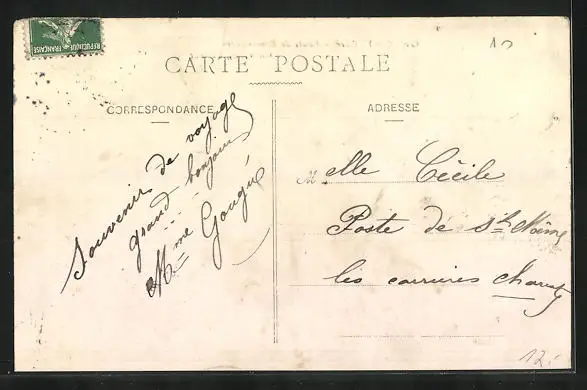 REPUBLIQUE FRANÇAISE
CARTE POSTALE
CORRESPONDANCE
ADRESSE
Souvenir de voyage
grand bonjour
Mme Gougué
Melle Cécile
Poste de St
les carrières
12